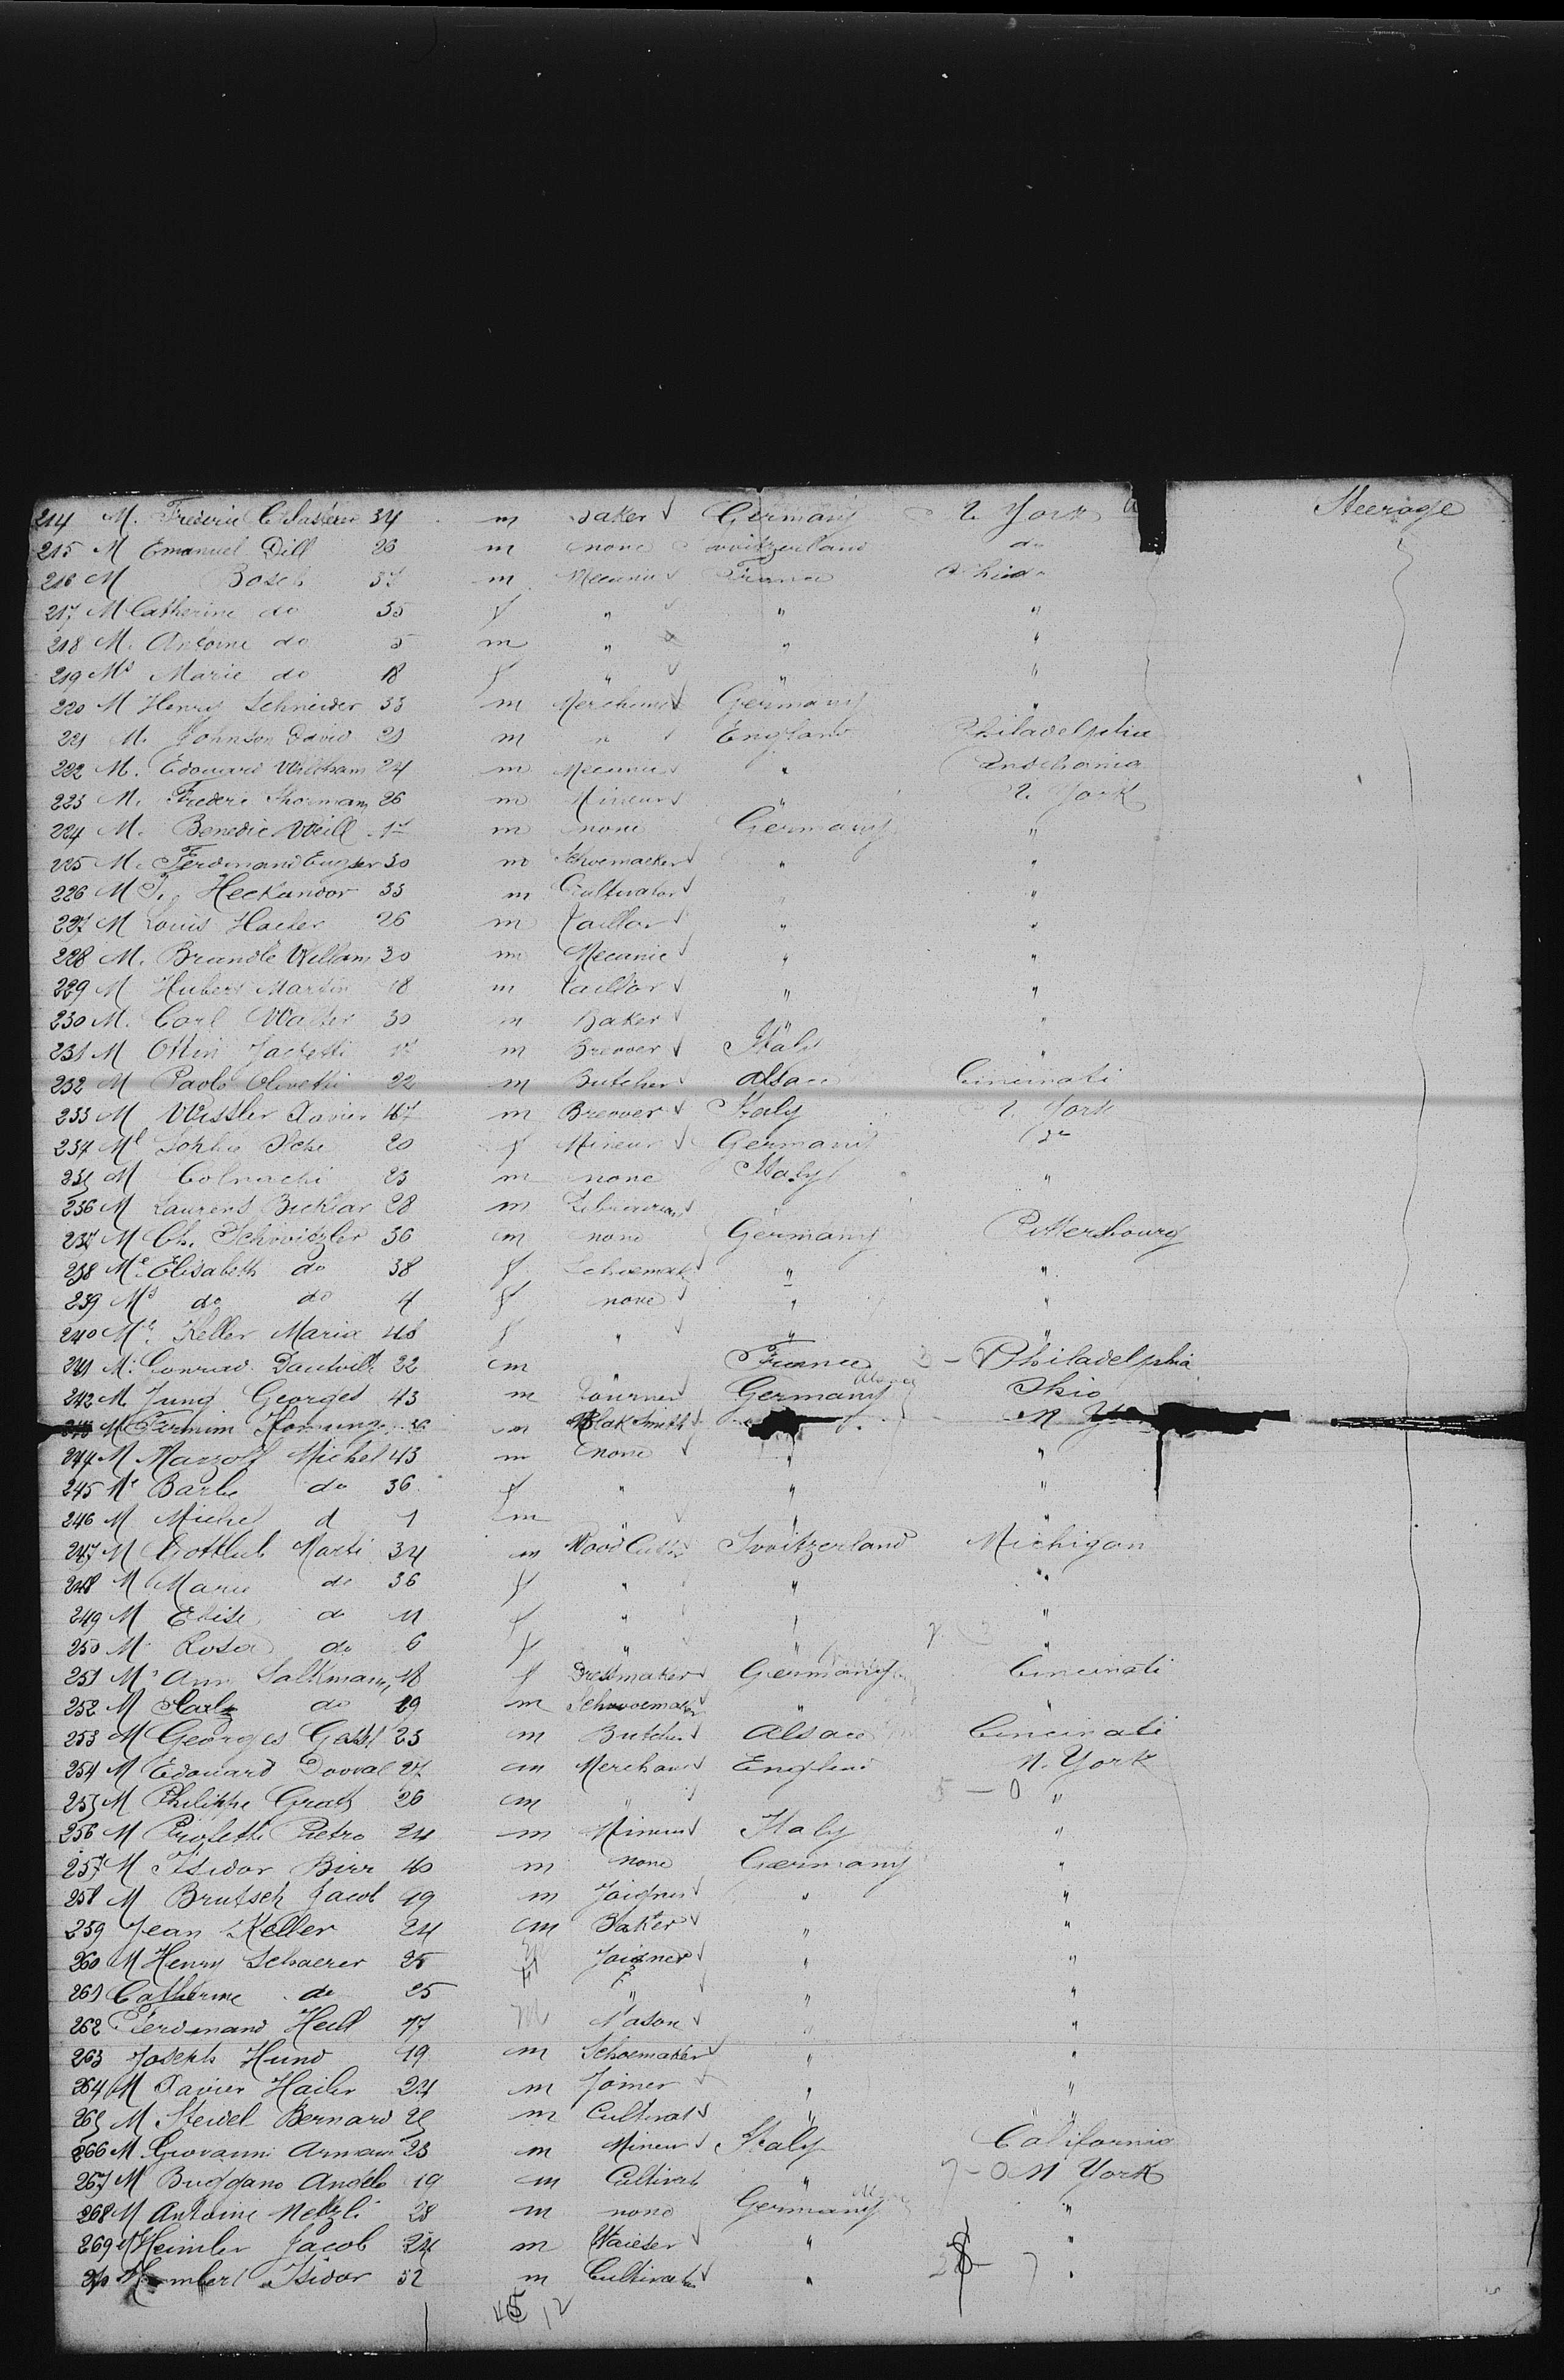 214 M. Frederic 34 m Baker Germany N. York Steerage
215 M Emanuel Dill 26 m none Switzerland do
216 M Bosch 37 m Mecanic France
217 M Catherine do 35 f " " "
218 M. Antoine do 5 m " " "
219 Ms Marie do 18 f " " "
220 M Henry Schneider 33 m Merchant Germany "
221 M. Johnson David 21 m " England Philadelphia
222 M. Edouard William 24 m Mecanic "
223 M. Frederic 26 m Mineur " N. York
224 M. Benedic Weill m none Germany "
225 M. Ferdinand 30 m Schoemacker " "
226 M J. Heckandor 33 m Cultivator " "
227 M Louis Hailer 26 m Taillor " "
228 M. Brandle Willam 30 m Mecanic " "
229 M Hubert Martin 18 m Taillor " "
230 M. Carl Walter 30 m Baker " "
231 M Ottin 17 m Brewer Italy "
232 M Paolo Olivetti 22 m Butcher Alsace Cincinati
233 M Wissler Xavier 47 m Brewer Italy N. York
234 Ml Sophie 20 f Mineur Germany do
235 M Colnachi 23 m none Italy "
236 M Laurens 28 m "
237 M Ch. Schwitzler 36 m none Germany Pittersbourg
238 Me Elisabeth do 38 f Schoemak " "
239 Ms do do 4 f none " "
240 Me. Keller Maria 48 f " " "
241 M. Conrad 22 m France 3 - Philadelphia
242 M Jung Georges 43 m Tourner Germany Alsace Ohio
M Firmim Hornung 36 m Blak Smith N
244 M Marzolf Michel 43 m none " "
245 Me Barbe do 36 f " " "
246 M Michel d 1 m " " "
247 M Gottlieb Marti 34 m Wood Cutter Switzerland Michigan
248 M Marie do 36 f " " "
249 M Elise do 11 f " " "
250 M Rosa do 6 f " " "
251 Ms Ann Salkmann 18 f Dressmaker Germany Cincinati
252 M Karl do 19 m Schoemaker " "
253 M Georges Gast 23 m Butcher Alsace Cincinati
254 M Edouard Dovval 27 m Merchant England N. York
255 M Philippe Gratz 26 m " 5 - 0 "
256 M Pietro 24 m Mineur Italy "
257 M Isidor Birr 40 m none Germany "
258 M Brutsch Jacob 19 m Joigner " "
259 Jean Keller 24 m Baker " "
260 M Henry Schaerer 25 Joigner " "
261 Catherine do 25 " " "
262 Ferdinand Hell 17 m Mason " "
263 Joseph Hund 19 m Schoemaker " "
264 M Xavier Hailer 24 m Joiner " "
265 M Steidel Bernard 25 m Cultivat " "
266 M. Giovanni 23 m Mineur Italy California
267 M Buggano Angelo 19 m Cultivat " 7 - 0 N York
268 M Antoine Metzli 28 m none Germany "
269 M Heimler Jacob 24 m Waieter " "
270 Isidor 52 m Cultivat " "
12